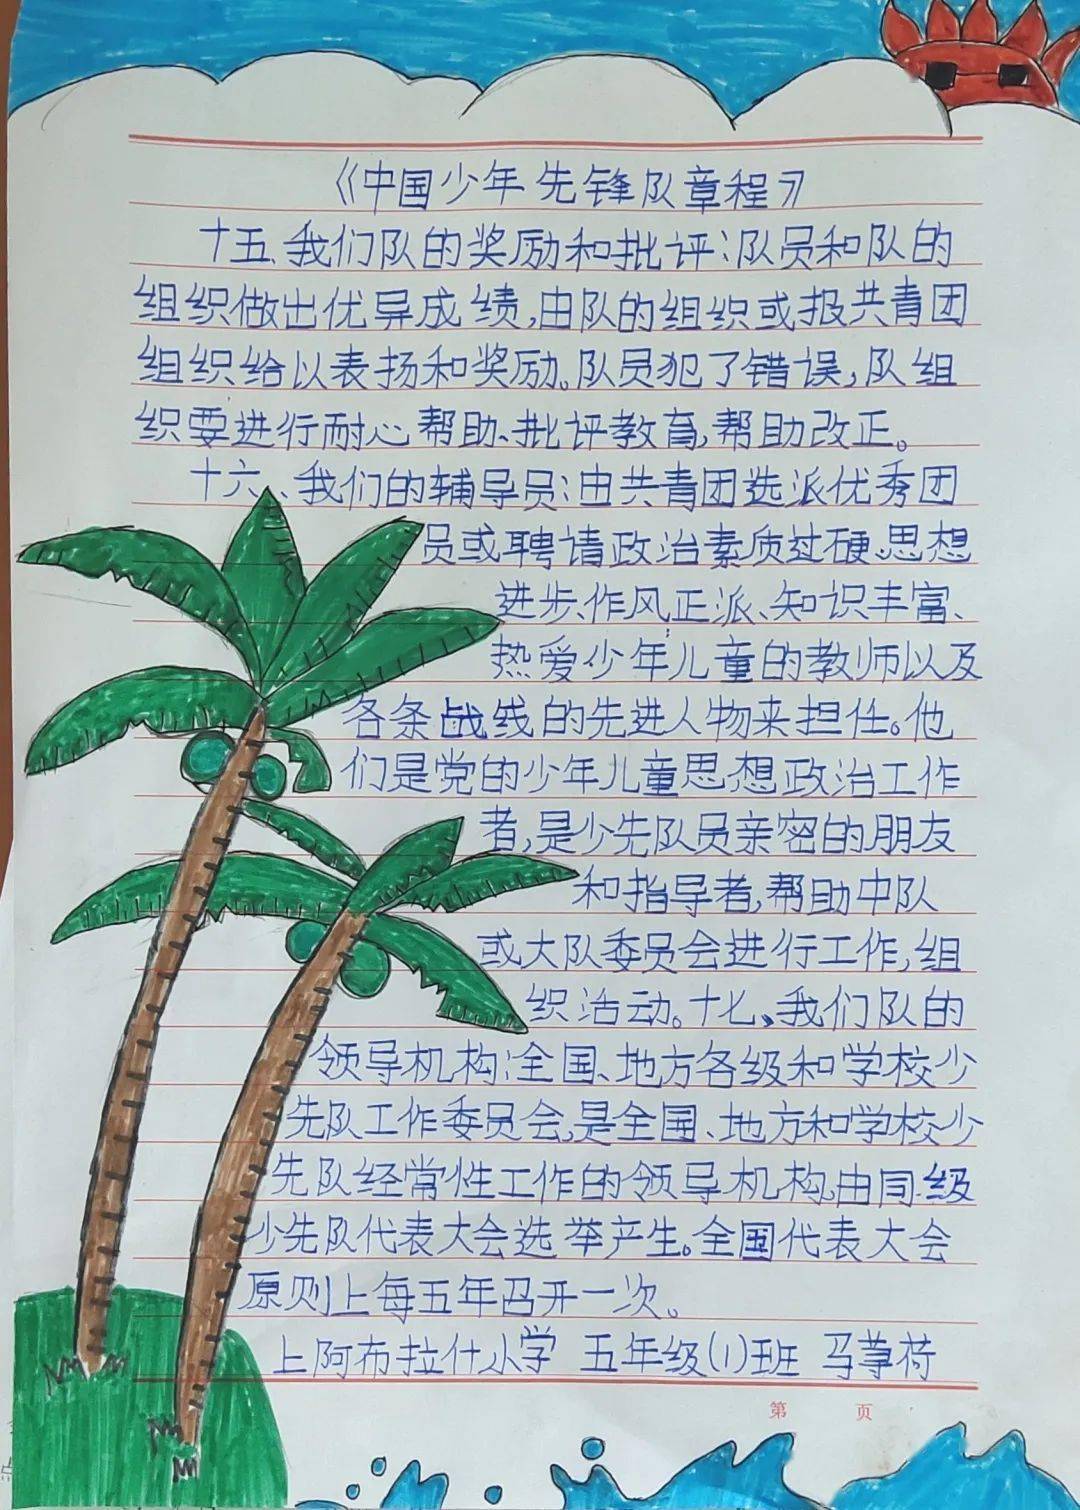 《中国少年先锋队章程》
十五、我们队的奖励和批评:队员和队的
组织做出优异成绩,由队的组织或报共青团
组织给以表扬和奖励。队员犯了错误,队组
织要进行耐心帮助、批评教育,帮助改正。
十六、我们的辅导员:由共青团选派优秀团
员或聘请政治素质过硬、思想
进步、作风正派、知识丰富、
热爱少年儿童的教师以及
各条战线的先进人物来担任。他
们是党的少年儿童思想政治工作
者,是少先队员亲密的朋友
和指导者,帮助中队
或大队委员会进行工作,组
织活动。十七、我们队的
领导机构:全国、地方各级和学校少
先队工作委员会,是全国、地方和学校少
先队经常性工作的领导机构,由同级
少先队代表大会选举产生。全国代表大会
原则上每五年召开一次。
上阿布拉什小学 五年级(1)班 马荷
第 页